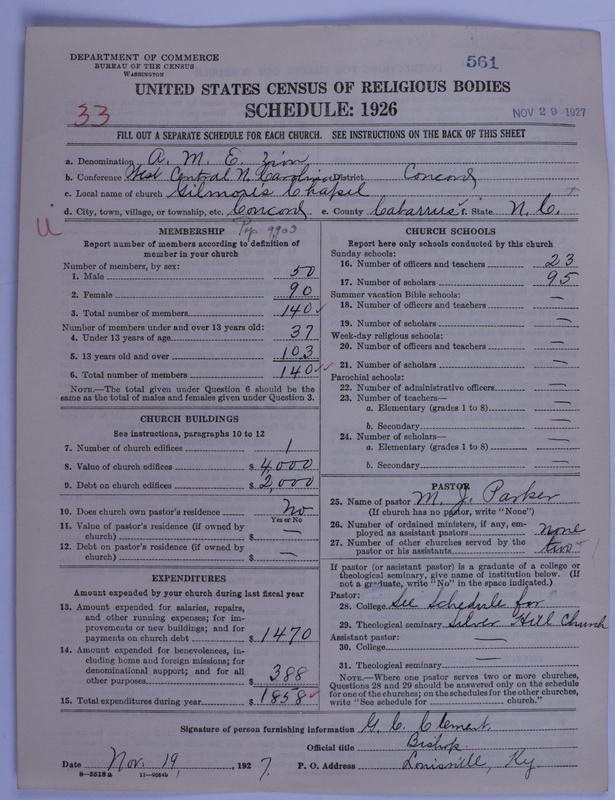 DEPARTMENT OF COMMERCE
BUREAU OF THE CENSUS
WASHINGTON
561
UNITED STATES CENSUS OF RELIGIOUS BODIES
SCHEDULE: 1926
33
NOV 29 1927
FILL OUT A SEPARATE SCHEDULE FOR EACH CHURCH. SEE INSTRUCTIONS ON THE BACK OF THIS SHEET
a. Denomination A. M. E. Zion
b. Conference West Central N. Carolina District Concord
c. Local name of church Gilmore's Chapel
d. City, town, village, or township, etc. Concord e. County Cabarrus f. State N. C.
MEMBERSHIP Pop. 9903
Report number of members according to definition of
member in your church
Number of members, by sex:
1. Male 50
2. Female 90
3. Total number of members 140
Number of members under and over 13 years old:
4. Under 13 years of age 37
5. 13 years old and over 103
6. Total number of members 140
NOTE.—The total given under Question 6 should be the
same as the total of males and females given under Question 3.
CHURCH BUILDINGS
See instructions, paragraphs 10 to 12
7. Number of church edifices 1
8. Value of church edifices $ 4,000
9. Debt on church edifices $ 2,000
10. Does church own pastor's residence No
Yes or No
11. Value of pastor's residence (if owned by
church) $ —
12. Debt on pastor's residence (if owned by
church) $ —
EXPENDITURES
Amount expended by your church during last fiscal year
13. Amount expended for salaries, repairs,
and other running expenses; for im-
provements or new buildings; and for
payments on church debt $ 1470
14. Amount expended for benevolences, in-
cluding home and foreign missions; for
denominational support; and for all
other purposes $ 388
15. Total expenditures during year $ 1858
CHURCH SCHOOLS
Report here only schools conducted by this church
Sunday schools:
16. Number of officers and teachers 23
17. Number of scholars 95
Summer vacation Bible schools:
18. Number of officers and teachers —
19. Number of scholars —
Week-day religious schools:
20. Number of officers and teachers —
21. Number of scholars —
Parochial schools:
22. Number of administrative officers —
23. Number of teachers—
a. Elementary (grades 1 to 8) —
b. Secondary —
24. Number of scholars—
a. Elementary (grades 1 to 8) —
b. Secondary —
PASTOR
25. Name of pastor M. J. Parker
(If church has no pastor, write "None")
26. Number of ordained ministers, if any, em-
ployed as assistant pastors none
27. Number of other churches served by the
pastor or his assistants two
If pastor (or assistant pastor) is a graduate of a college or
theological seminary, give name of institution below. (If
not a graduate, write "No" in the space indicated.)
Pastor:
28. College See schedule for
29. Theological seminary Silver Hill Church
Assistant pastor:
30. College —
31. Theological seminary —
NOTE.—Where one pastor serves two or more churches,
Questions 28 and 29 should be answered only on the schedule
for one of the churches; on the schedules for the other churches,
write "See schedule for church."
Signature of person furnishing information G. C. Clement
Official title Bishop
Date Nov. 19, 1927. P. O. Address Louisville, Ky.
8—5518a 11—9564b